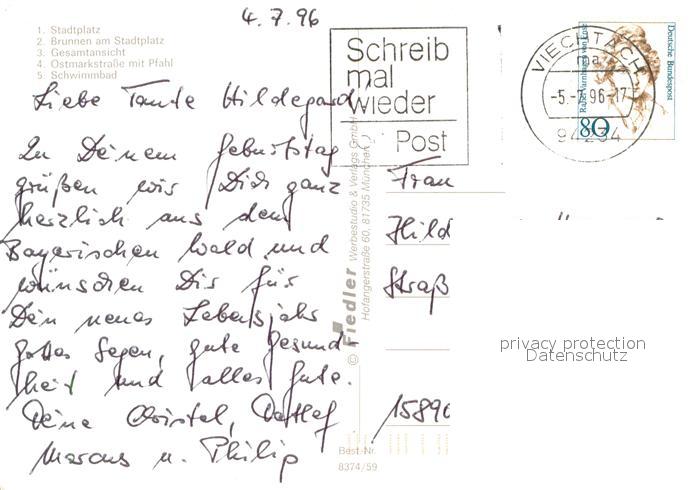 4.7.96
1. Stadtplatz
2. Brunnen am Stadtplatz
3. Gesamtansicht
4. Ostmarkstraße mit Pfahl
5. Schwimmbad
Liebe Tante Hildegard,
Zu Deinem Geburtstag
grüßen wir Dich ganz
herzlich aus dem
Bayerischen Wald und
wünschen Dir für
Dein neues Lebensjahr
Gottes Segen, gute Gesund
heit und alles Gute.
Deine Christel, Detlef
Marcus u. Philip
Schreib
mal
wieder
Post
VIECHTACH
ma
-5.-7.96-17
94234
Deutsche Bundespost
Rahel Varnhagen von Ense
80
© Fiedler Werbestudio & Verlags GmbH
Hofangerstraße 60, 81735 München
Frau
Hild
Straß
15890
privacy protection
Datenschutz
Best.-Nr.
8374/59